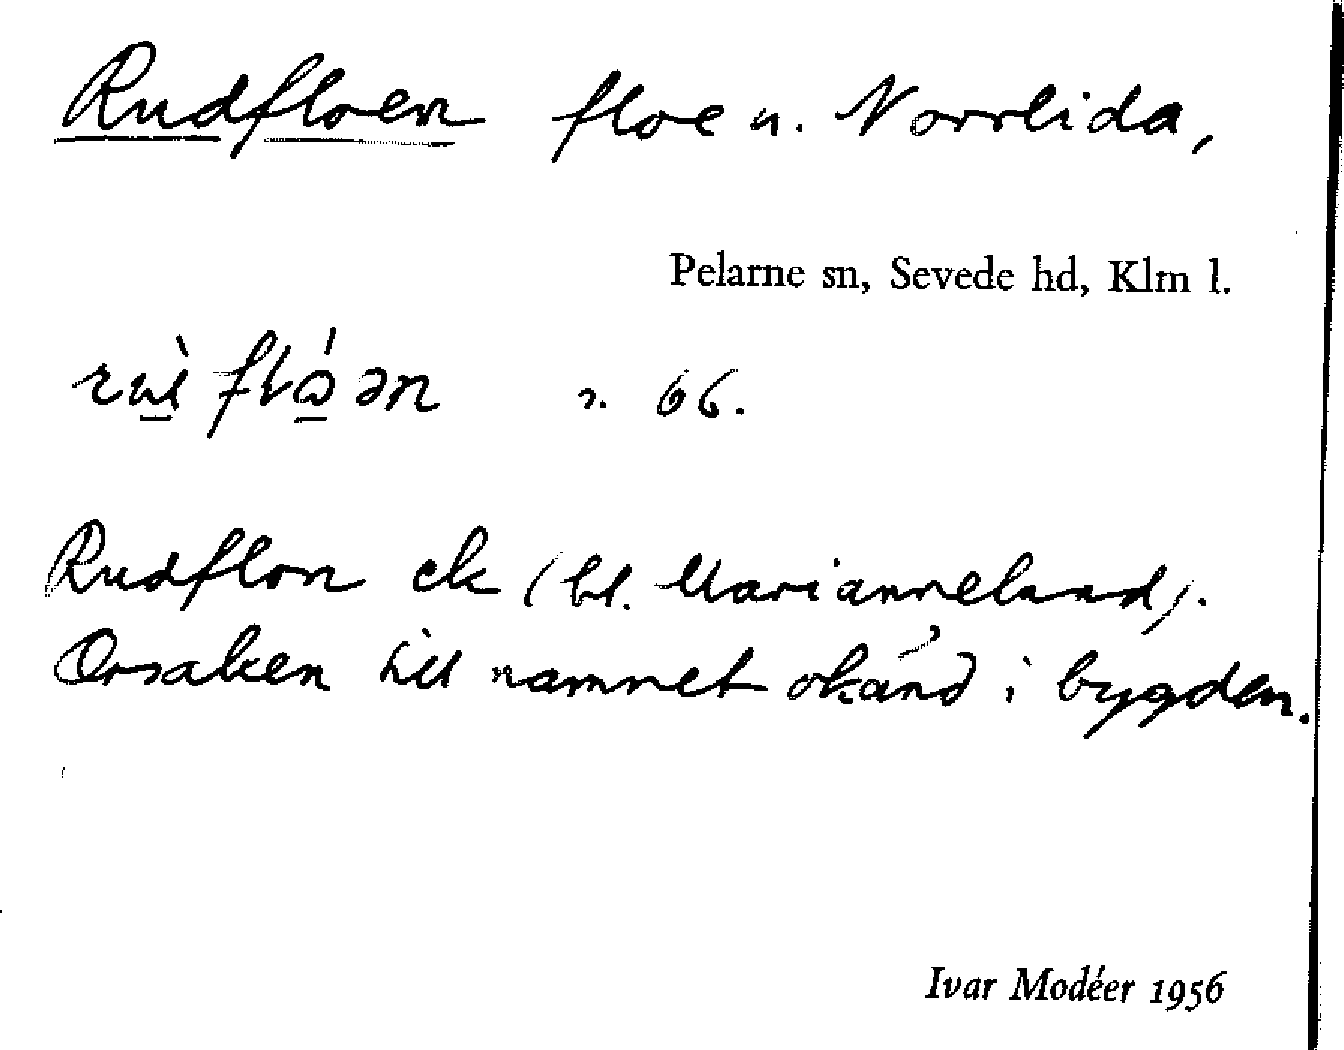 Rudfloen floe u. Norrlida,
Pelarne sn, Sevede hd, Klm l.
66.
Rudflon ek (bl. Marianneland).
Orsaken till namnet okänd i bygden.
Ivar Modéer 1956